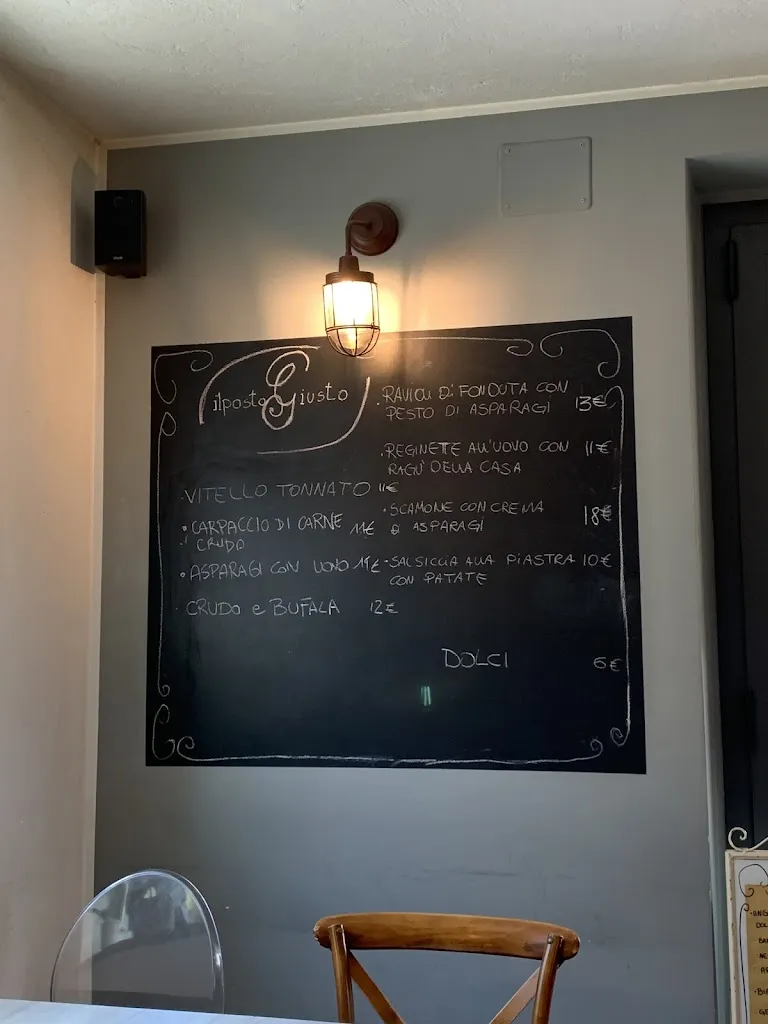 ilposto Giusto
VITELLO TONNATO 11€
• CARPACCIO DI CARNE 11€
CRUDO
• ASPARAGI CON UOVO 11€
CRUDO e BUFALA 12€
• RAVIOLI Di FONDUTA CON
PESTO DI ASPARAGI 13€
• REGINETTE ALL'UOVO CON 11€
RAGU' DELLA CASA
• SCAMONE CON CREMA
DI ASPARAGI 18€
• SALSICCIA ALLA PIASTRA 10€
CON PATATE
DOLCI 6€